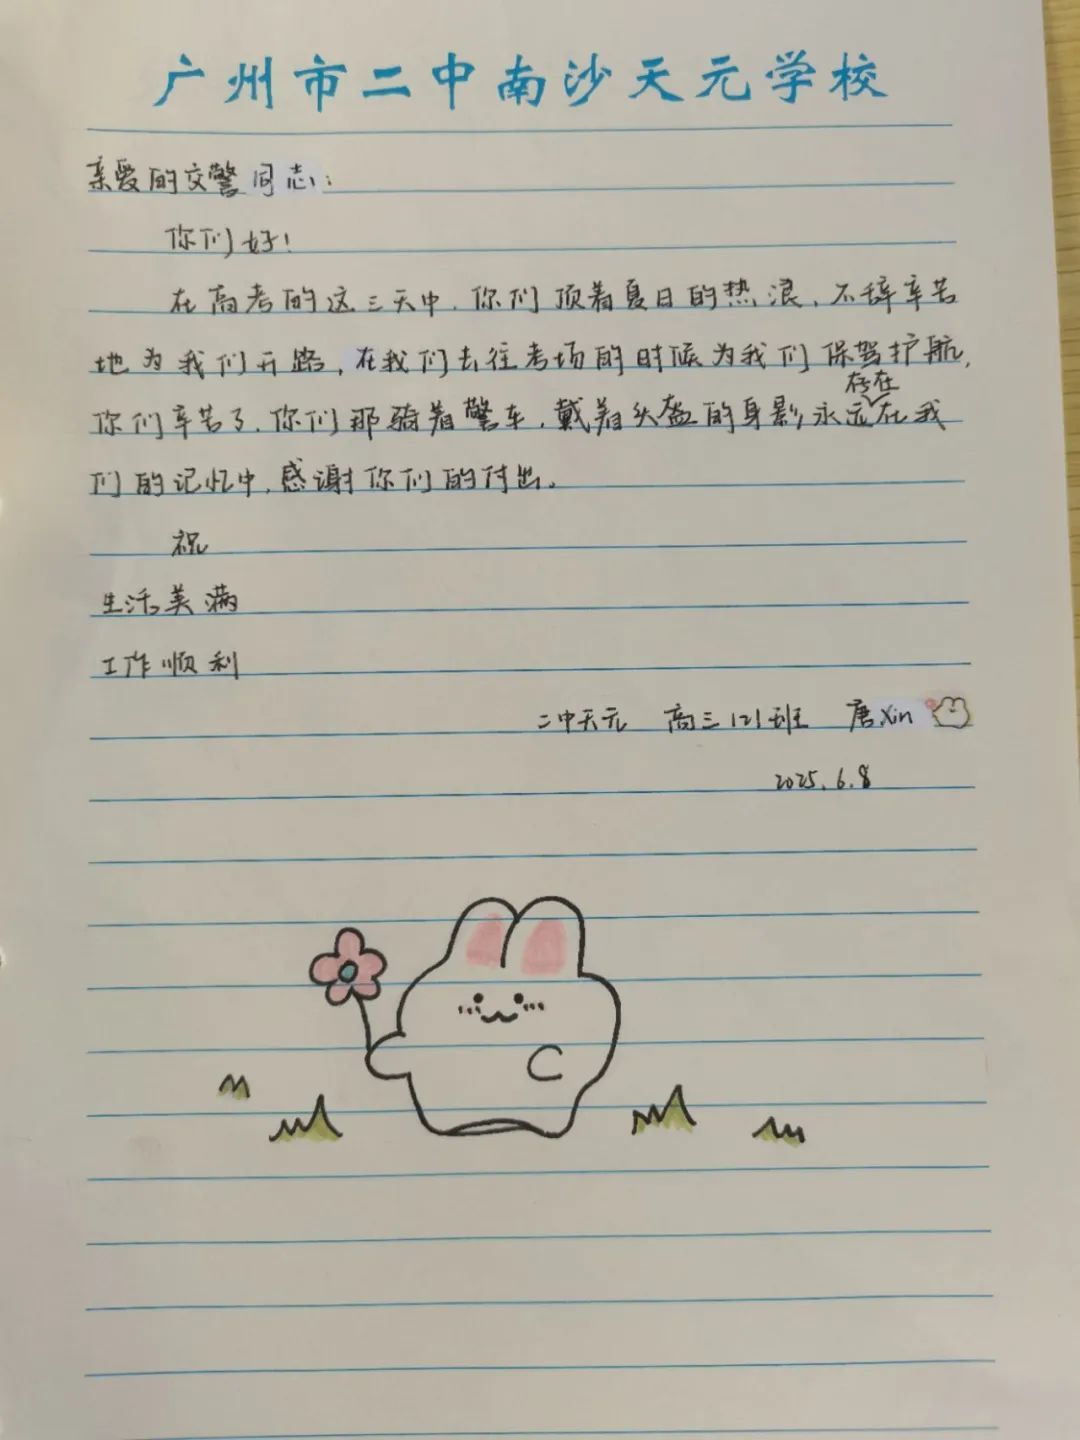 广州市二中南沙天元学校
亲爱的交警同志:
你们好!
在高考的这三天中,你们顶着夏日的热浪,不辞辛苦
地为我们开路,在我们去往考场的时候为我们保驾护航,
存在
你们辛苦了,你们那骑着警车,戴着头盔的身影永远在我
们的记忆中,感谢你们的付出。
祝
生活美满
工作顺利
二中天元 高三121班 唐Xin
2025.6.8